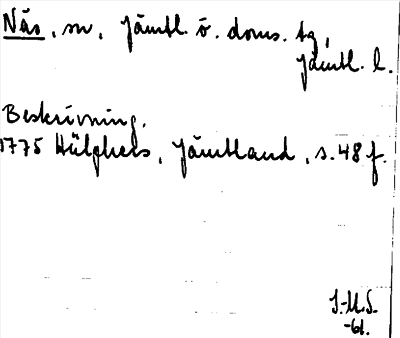 Näs, sn, Jämtl. ö. doms. tg,
Jämtl. l.
Beskrivning.
1775 Hülphers, Jämtland, s. 48 f.
I.-M.S.
-61.